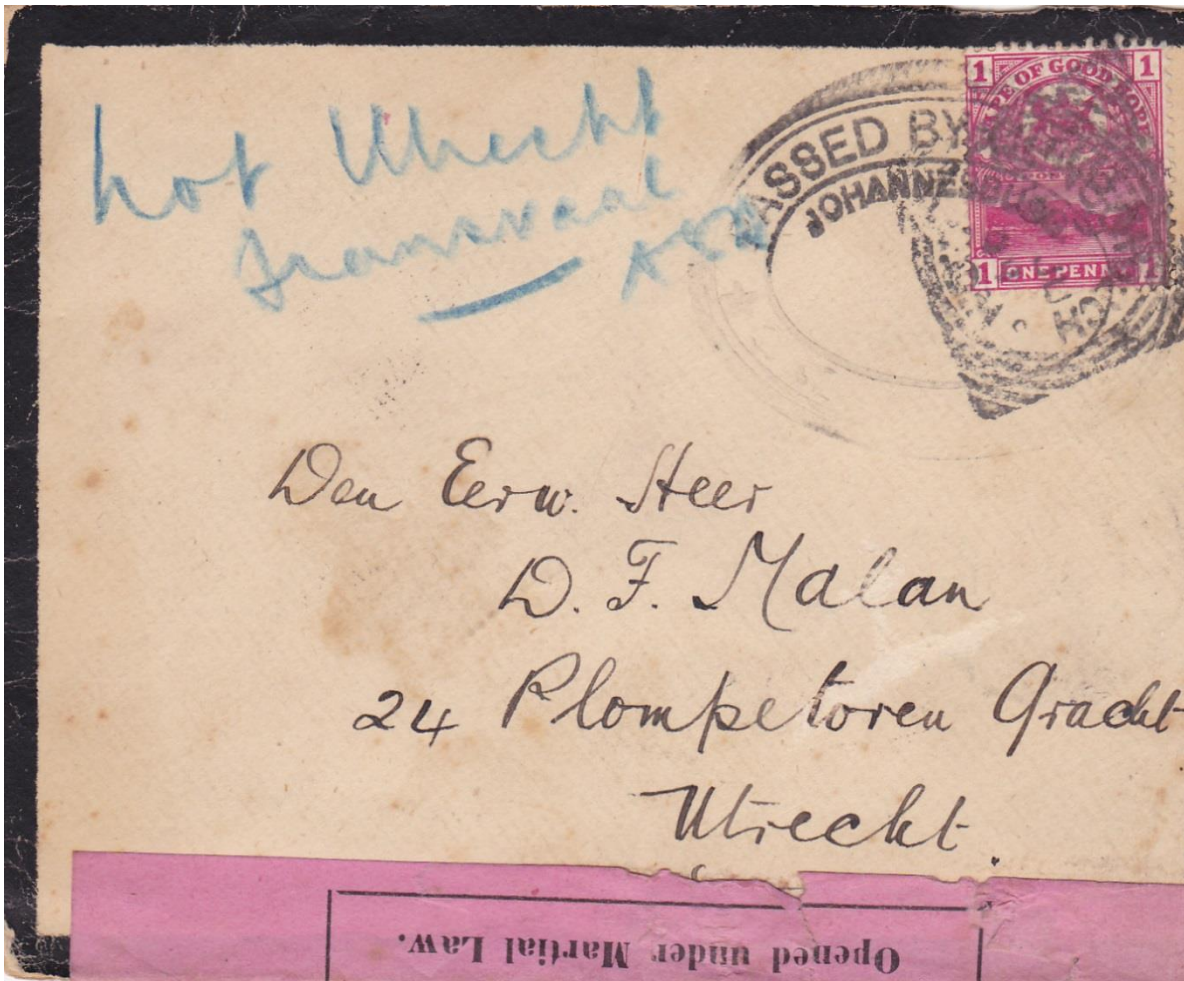 not Utrecht
Transvaal
PASSED BY
JOHANNESBURG
1 CAPE OF GOOD HOPE 1
1 ONE PENNY 1
Den Eerw. Heer
D. F. Malan
24 Plompetoren Gracht
Utrecht.
Opened under Martial Law.